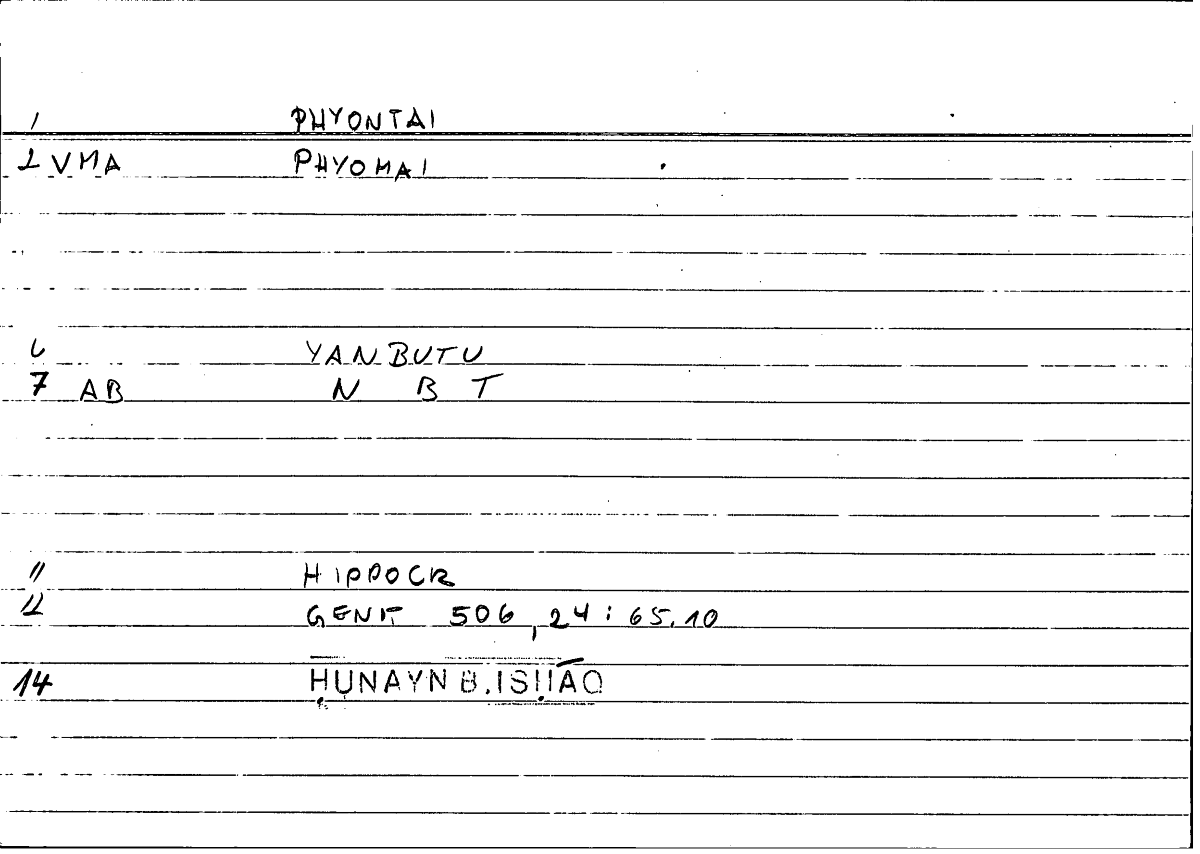 1 PHYONTAI
2 VMA PHYOMAI
6 YANBUTU
7 AB N B T
11 HIPPOCR
12 GENIT 506,24 : 65.10
14 ḤUNAYN B. ISḤĀQ